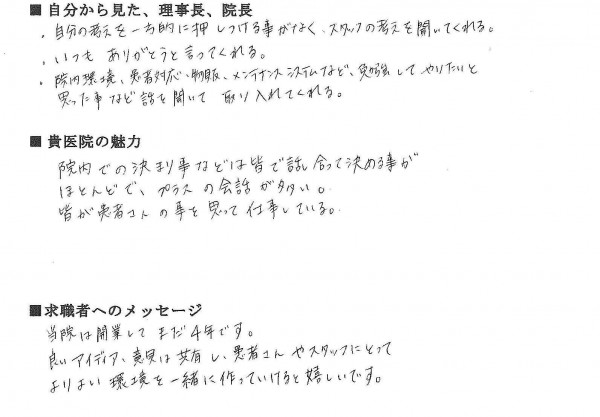 ■ 自分から見た、理事長、院長
・自分の考えを一方的に押しつける事がなく、スタッフの考えを聞いてくれる。
・いつも ありがとうと言ってくれる。
・院内環境、患者対応、物販、メンテナンスシステムなど、勉強して やりたいと
思った事など 話を聞いて 取り入れてくれる。
■ 貴医院の魅力
院内での決まり事などは皆で話し合って決める事が
ほとんどで、プラスの会話が多い。
皆が患者さんの事を思って仕事している。
■求職者へのメッセージ
当院は開業して まだ4年です。
良いアイディア、意見は共有し、患者さんやスタッフにとって
よりよい環境を一緒に作っていけると嬉しいです。